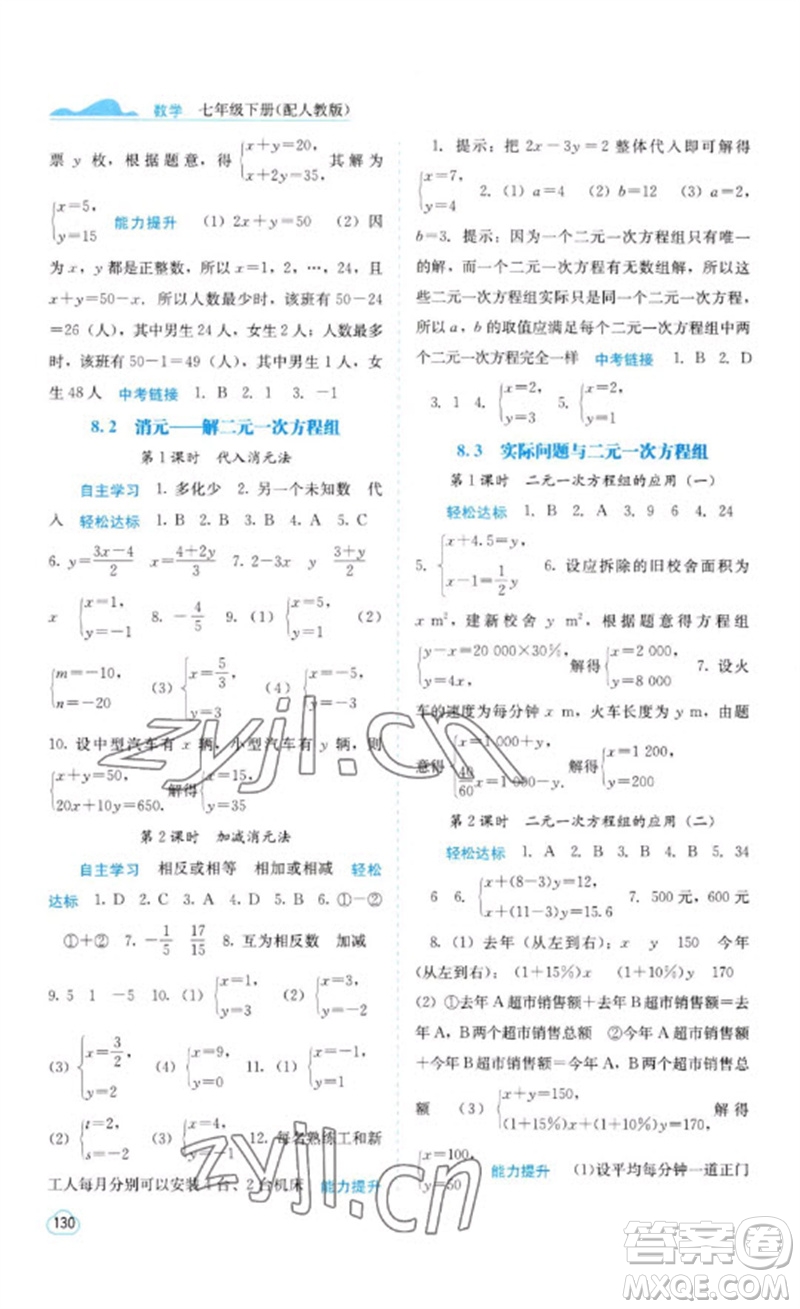 数学 七年级下册(配人教版)
票 y 枚，根据题意，得 {x+y=20, x+2y=35, 其解为
{x=5, y=15 能力提升 (1) 2x+y=50 (2) 因
为 x，y 都是正整数，所以 x=1，2，…，24，且
x+y=50-x. 所以人数最少时，该班有 50-24
=26（人），其中男生 24 人，女生 2 人；人数最多
时，该班有 50-1=49（人），其中男生 1 人，女
生 48 人 中考链接 1. B 2. 1 3. -1
8.2 消元——解二元一次方程组
第 1 课时 代入消元法
自主学习 1. 多化少 2. 另一个未知数 代
入 轻松达标 1. B 2. B 3. B 4. A 5. C
6. y=(3x-4)/2 x=(4+2y)/3 7. 2-3x (3+y)/2
x {x=1, y=-1 8. -4/5 9. (1) {x=5, y=1 (2)
{m=-10, n=-20 (3) {x=5/3, y=3 (4) {x=-2, y=3
10. 设中型汽车有 x 辆，小型汽车有 y 辆，则
{x+y=50, 20x+10y=650. 解得 {x=15, y=35
第 2 课时 加减消元法
自主学习 相反或相等 相加或相减 轻松
达标 1. D 2. C 3. A 4. D 5. B 6. ①-②
①+② 7. -1/5 17/15 8. 互为相反数 加减
9. 5 1 -5 10. (1) {x=1, y=3 (2) {x=3, y=-2
(3) {x=3/2, y=3 (4) {x=9, y=0 11. (1) {x=1, y=-2
(2) {t=2, s=-2 (3) {x=4, y=-1 12. 每名熟练工和新
工人每月分别可以安装 4 台、2 台机床 能力提升
130
1. 提示：把 2x-3y=2 整体代入即可解得
{x=7, y=4 2. (1) a=4 (2) b=12 (3) a=2，
b=3. 提示：因为一个二元一次方程组只有唯一
的解，而一个二元一次方程有无数组解，所以这
些二元一次方程组实际只是同一个二元一次方程，
所以 a，b 的取值应满足每个二元一次方程组中两
个二元一次方程完全一样 中考链接 1. B 2. D
3. 1 4. {x=2, y=3 5. {x=2, y=3
8.3 实际问题与二元一次方程组
第 1 课时 二元一次方程组的应用（一）
轻松达标 1. B 2. A 3. 9 6 4. 24
5. {x+4.5=y, x-1=1/2 y 6. 设应拆除的旧校舍面积为
x m²，建新校舍 y m²，根据题意得方程组
{y-x=20 000×30%, y=4x, 解得 {x=2 000, y=8 000 7. 设火
车的速度为每分钟 x m，火车长度为 y m，由题
意得 {x=1 000+y, 40/60 x=1 000-y. 解得 {x=1 200, y=200
第 2 课时 二元一次方程组的应用（二）
轻松达标 1. A 2. B 3. B 4. B 5. 34
6 6. {x+(8-3)y=12, x+(11-3)y=15.6 7. 500 元，600 元
8. (1) 去年（从左到右）：x y 150 今年
(从左到右)：(1+15%)x (1+10%)y 170
(2) ①去年 A 超市销售额+去年 B 超市销售额=
去年 A，B 两个超市销售总额 ②今年 A 超市销售
额+今年 B 超市销售额=今年 A，B 两个超市销售总
额 (3) {x+y=150, (1+15%)x+(1+10%)y=170, 解得
{x=100, y=50 能力提升 (1)设平均每分钟一道正门
zyjl.cn
zyjl.cn
答案圈
MXQE.COM